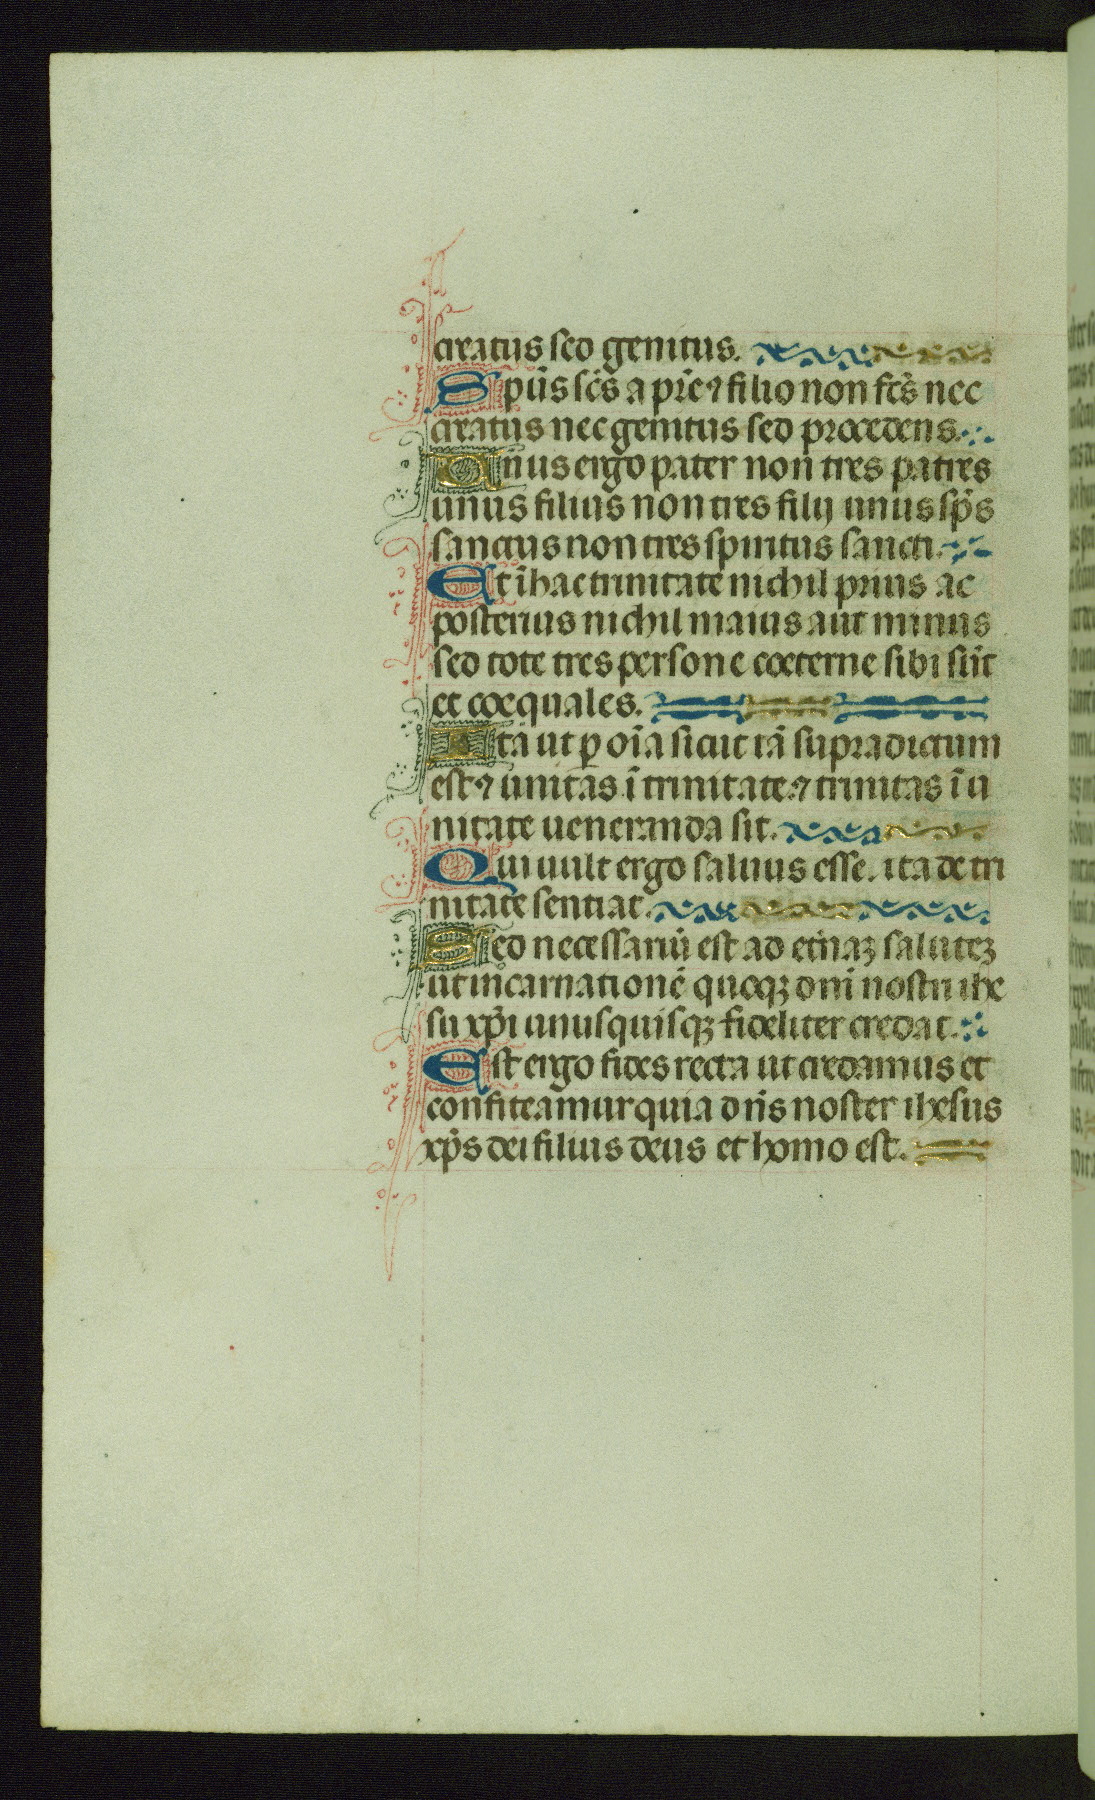 creatus sed genitus.
Spūs scs̄ a pr̄e ⁊ filio non fcs̄ nec
creatus nec genitus sed procedens.
Unus ergo pater non tres patres
unus filius non tres filij unus sps̄
sanctus non tres spiritus sancti.
Et ī hac trinitate nichil prius ac
posterius nichil maius aut minus
sed tote tres persone coeterne sibi sūt
et coequales.
Ita ut ꝑ oīa sicut iā supradictum
est ⁊ unitas ī trinitate ⁊ trinitas ī u
nitate ueneranda sit.
Qui uult ergo saluus esse. ita de tri
nitate sentiat.
Sed necessariū est ad et̄naꝫ saluteꝫ
ut incarnationē quoqꝫ dn̄i nostri ihe
su xp̄i unusquisqꝫ fideliter credat.
Est ergo fides recta ut credamus et
confiteamur quia dn̄s noster ihesus
xp̄s dei filius deus et homo est.